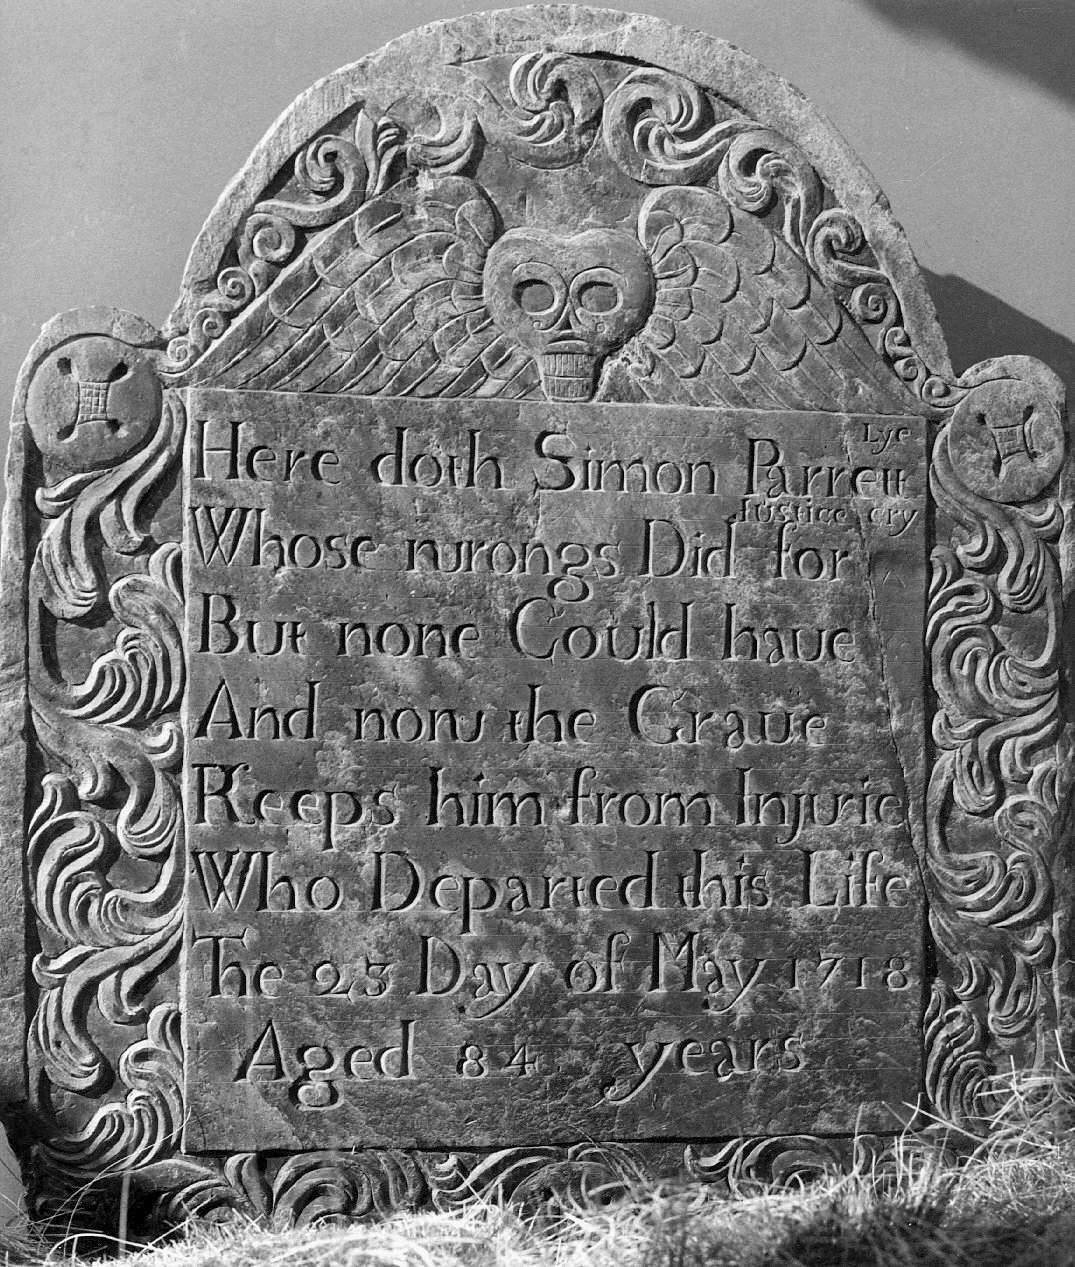 Here doth Simon Parrett Lye
Whose wrongs Did for Iustice cry
But none Could haue
And now the Graue
Keeps him from Injurie
Who Departed this Life
The 23 Day of May 1718
Aged 84 Years